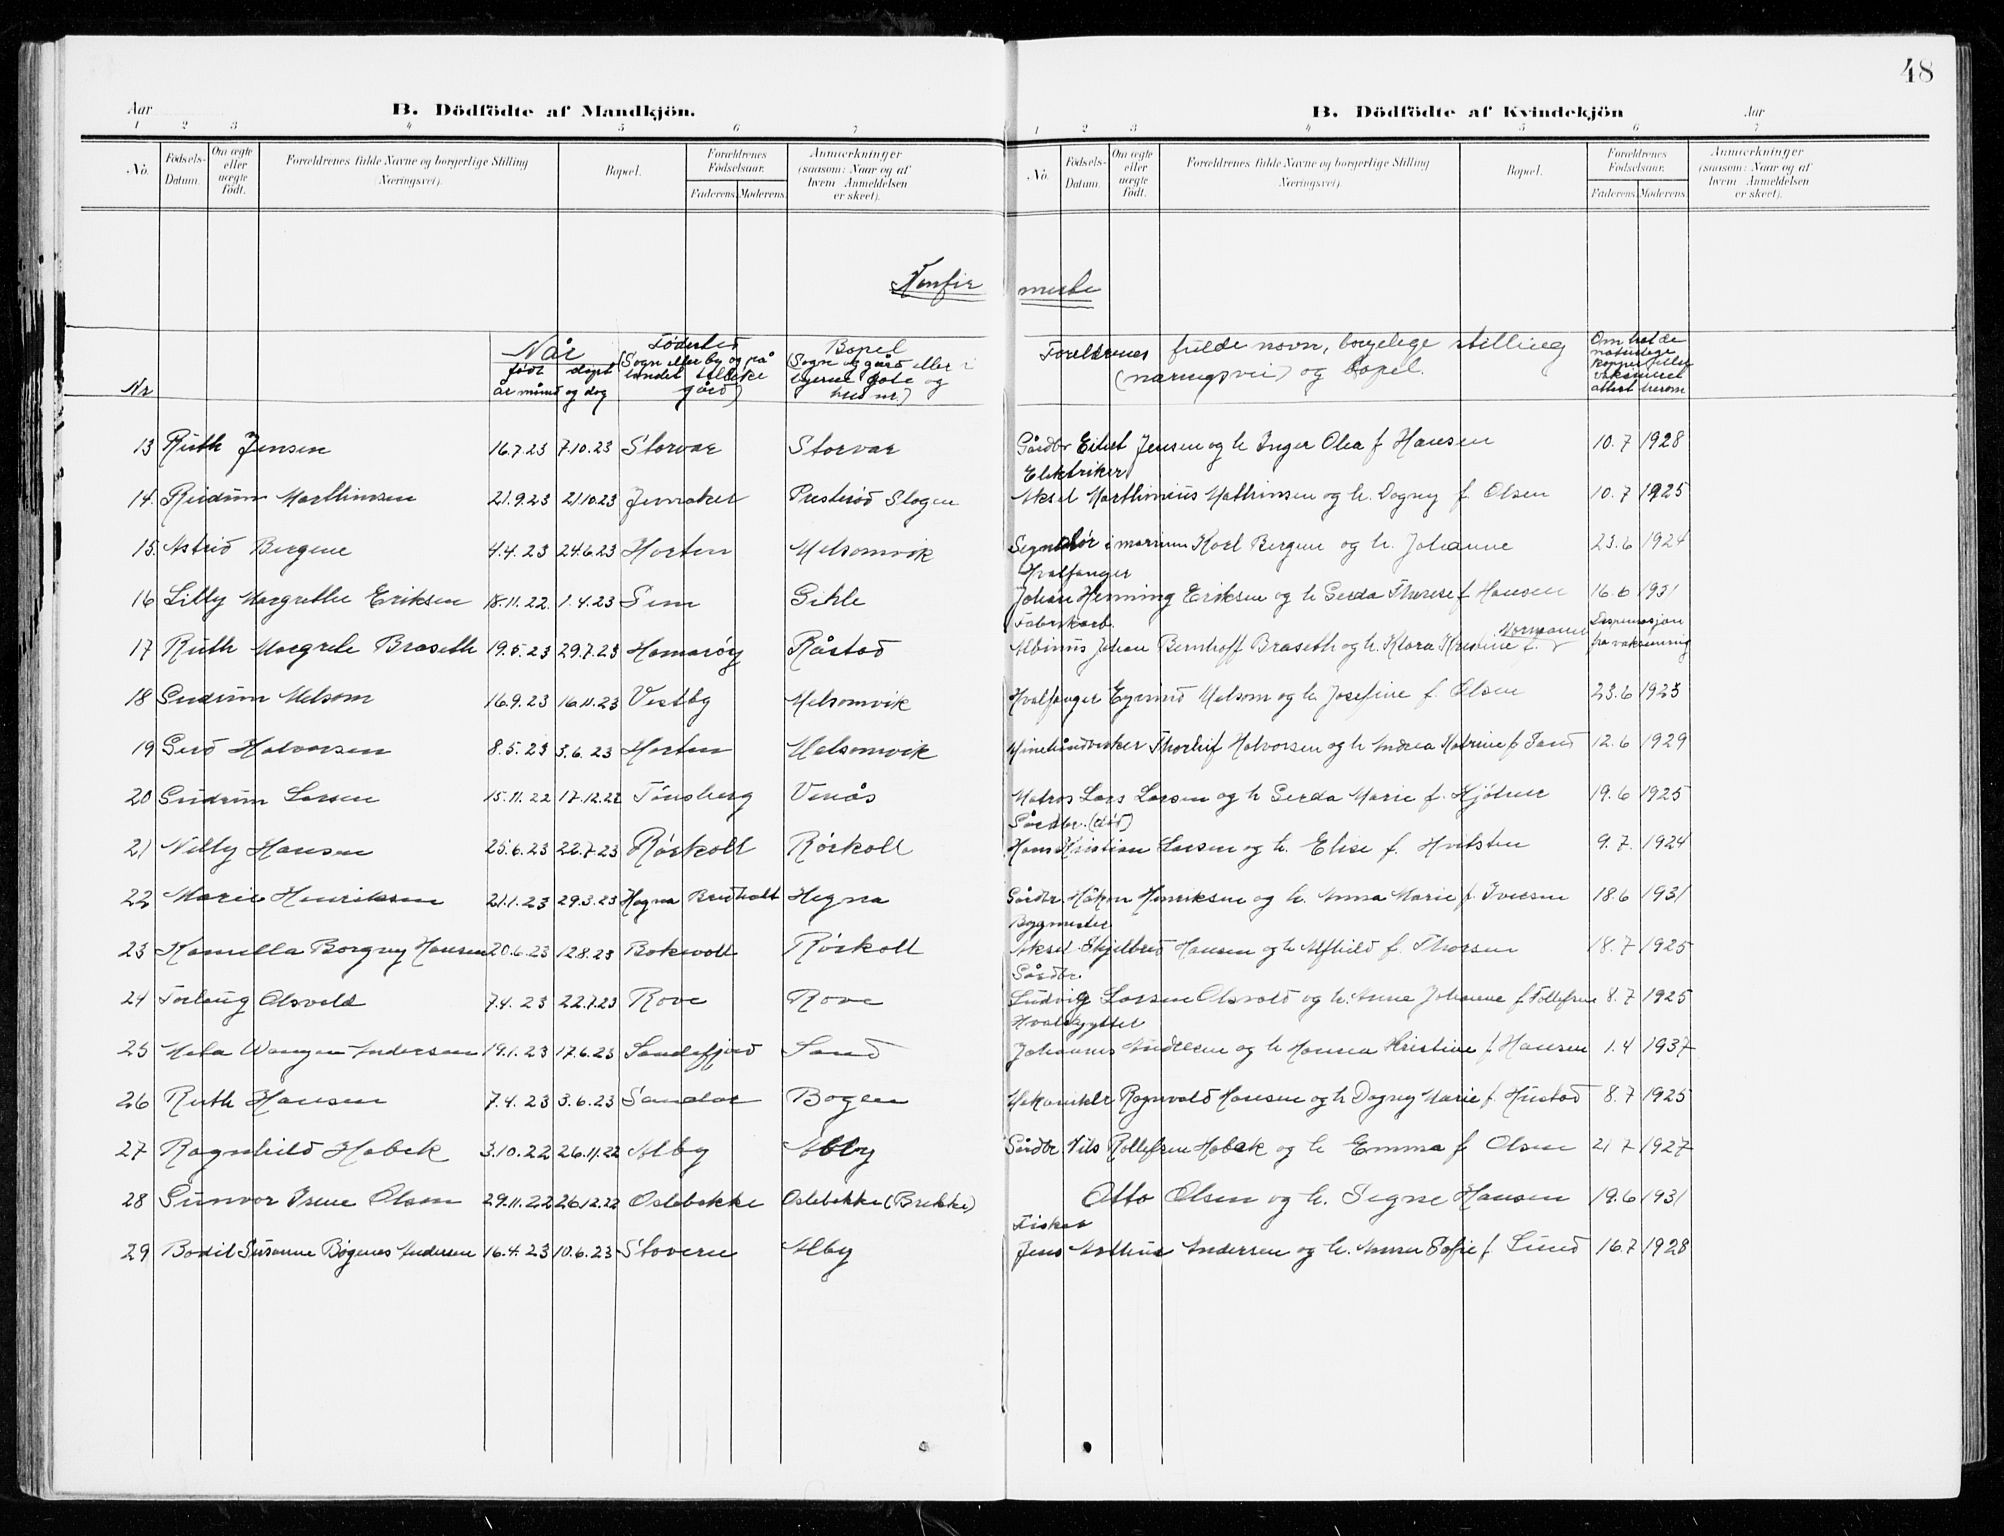 48
Aar B. Dödfödte af Mandkjön.
1 2 3 4 5 6 7
No. Födsels-Datum. Om ægte eller uægte födt. Forældrenes fulde Navne og borgerlige Stilling (Næringsvei). Bopæl. Forældrenes Födselsaar. Faderens. Moderens. Anmærkninger (saasom: Naar og af hvem Anmeldelsen er skeet).
B. Dödfödte af Kvindekjön Aar
1 2 3 4 5 6 7
No. Födsels-Datum. Om ægte eller uægte födt. Forældrenes fulde Navne og borgerlige Stilling (Næringsvei). Bopæl. Forældrenes Födselsaar. Faderens. Moderens. Anmærkninger (saasom: Naar og af hvem Anmeldelsen er skeet).
Konfir merte
Nr Når født døpt år måned og dag Fødested (Sogn eller by og på landet tillike gård) Bopel (Sogn og gård eller i byerne gate og hus nr.) Foreldrenes fulde navn, borgelige stilling (næringsvei) og bopel. Om hat de naturlige kopper eller vaksineret attest herom
13 Ruth Jensen 16.7.23 7.10.23 Storvar Storvar Gårdbr Eilert Jensen og h Inger Olea f Hansen 10.7 1928
Elektriker
14. Reidun Marthinsen 21.9.23 21.10.23 Jevnaker Presterød Slagen Aksel Marthinius Mathinsen og h. Dagny f. Olsen 10.7 1925
15. Astrid Bergene 4.4.23 24.6.23 Horten Melsomvik i marinen Karl Bergene og h. Johanne 23.6 1924
Hvalfanger
16 Lilly Margrethe Eriksen 18.11.22 1.4.23 Sem Gihle Johan Henning Eriksen og h Gerda Therese f Hansen 16.6 1931
Fabrikarb. Normann Dispensasjon
17 Ruth Margrete Braseth 19.5.23 29.7.23 Hamarøy Råstad Albinus Johan Bernhoff Braseth og h. Klara Kristine f. fra vaksinering
18 Gudrun Melsom 16.9.23 16.11.23 Vestby Melsomvik Hvalfanger Eyvind Melsom og h Josefine f. Olsen 23.6 1923
19 Gerd Halvorsen 8.5.23 3.6.23 Horten Melsomvik Minehåndverker Thorleif Halvorsen og h Andrea Katrine f Sand 12.6 1929
20 Gudrun Larsen 15.11.22 17.12.22 Tønsberg Venås Matros Lars Larsen og h Gerda Marie f. 19.6 1925
Gårdbr. (død)
21 Nelly Hansen 25.6.23 22.7.23 Rørkoll Rørkoll Hans Kristian Larsen og h. Elise f. Hvitsten 9.7. 1924
22 Marie Henriksen 21.1.23 29.3.23 Hegna Hegna Gårdbr. Håkon Henriksen og h. Anna Marie f. Iversen 18.6 1931
Bygmester
23 Kamilla Borgny Hansen 20.6.23 12.8.23 Bokevoll Rørkoll Aksel Skjelbred Hansen og h Alfhild f. Thorsen 18.7 1925
Gårdbr.
24 Torlaug Olsvold 7.4.23 22.7.23 Rove Rove Ludvig Larsen Olsvold og h. Anne Johanne f Tollefsen 8.7 1925
Hvalskytter
25 Meta Wangen Andersen 19.1.23 17.6.23 Sandefjord Sand Johannes Andersen og h Hanna Kristine f. Hansen 1.4 1937
26 Ruth Hansen 7.4.23 3.6.23 Sandar Bogen Mekaniker Ragnvald Hansen og h Dagny Marie f. Hustad 8.7 1925
27 Ragnhild Habek 3.10.22 26.11.22 Alby Alby Gårdbr. Nils Rollefsen Habek og h Emma f Olsen 21 7 1927
28 Gunvor Irene Olsen 29.11.22 26.12.22 Oslebakke Oslebakke (Brekke) Otto Olsen og h. Signe Hansen 19.6 1931
Fisker
29 Bodil Susanne Bøgenes Andersen 16.4.23 10.6.23 Stavern Alby Jens Mathias Andersen og h. Anna Sofie f Lund 16.7 1928